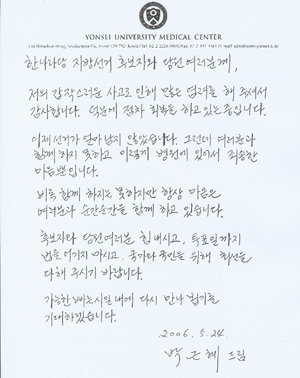 YONSEI UNIVERSITY MEDICAL CENTER
한나라당 지방선거 후보자와 당원 여러분께,
저의 갑작스러운 사고로 인해 많은 염려를 해 주셔서
감사합니다. 덕분에 점차 회복을 하고 있는 중입니다.
이제 선거가 얼마 남지 않았습니다. 그런데 여러분과
함께 하지 못하고 이렇게 병원에 있어서 죄송한
마음뿐입니다.
비록 함께 하지는 못하지만 항상 마음은
여러분과 순간순간을 함께 하고 있습니다.
후보자와 당원여러분 힘내시고, 투표일까지
법을 어기지 마시고, 국가와 국민을 위해 최선을
다해 주시기 바랍니다.
가능한 빠른 시일 내에 다시 만나 뵙기를
기대하겠습니다.
2006. 5. 24.
박근혜 드림